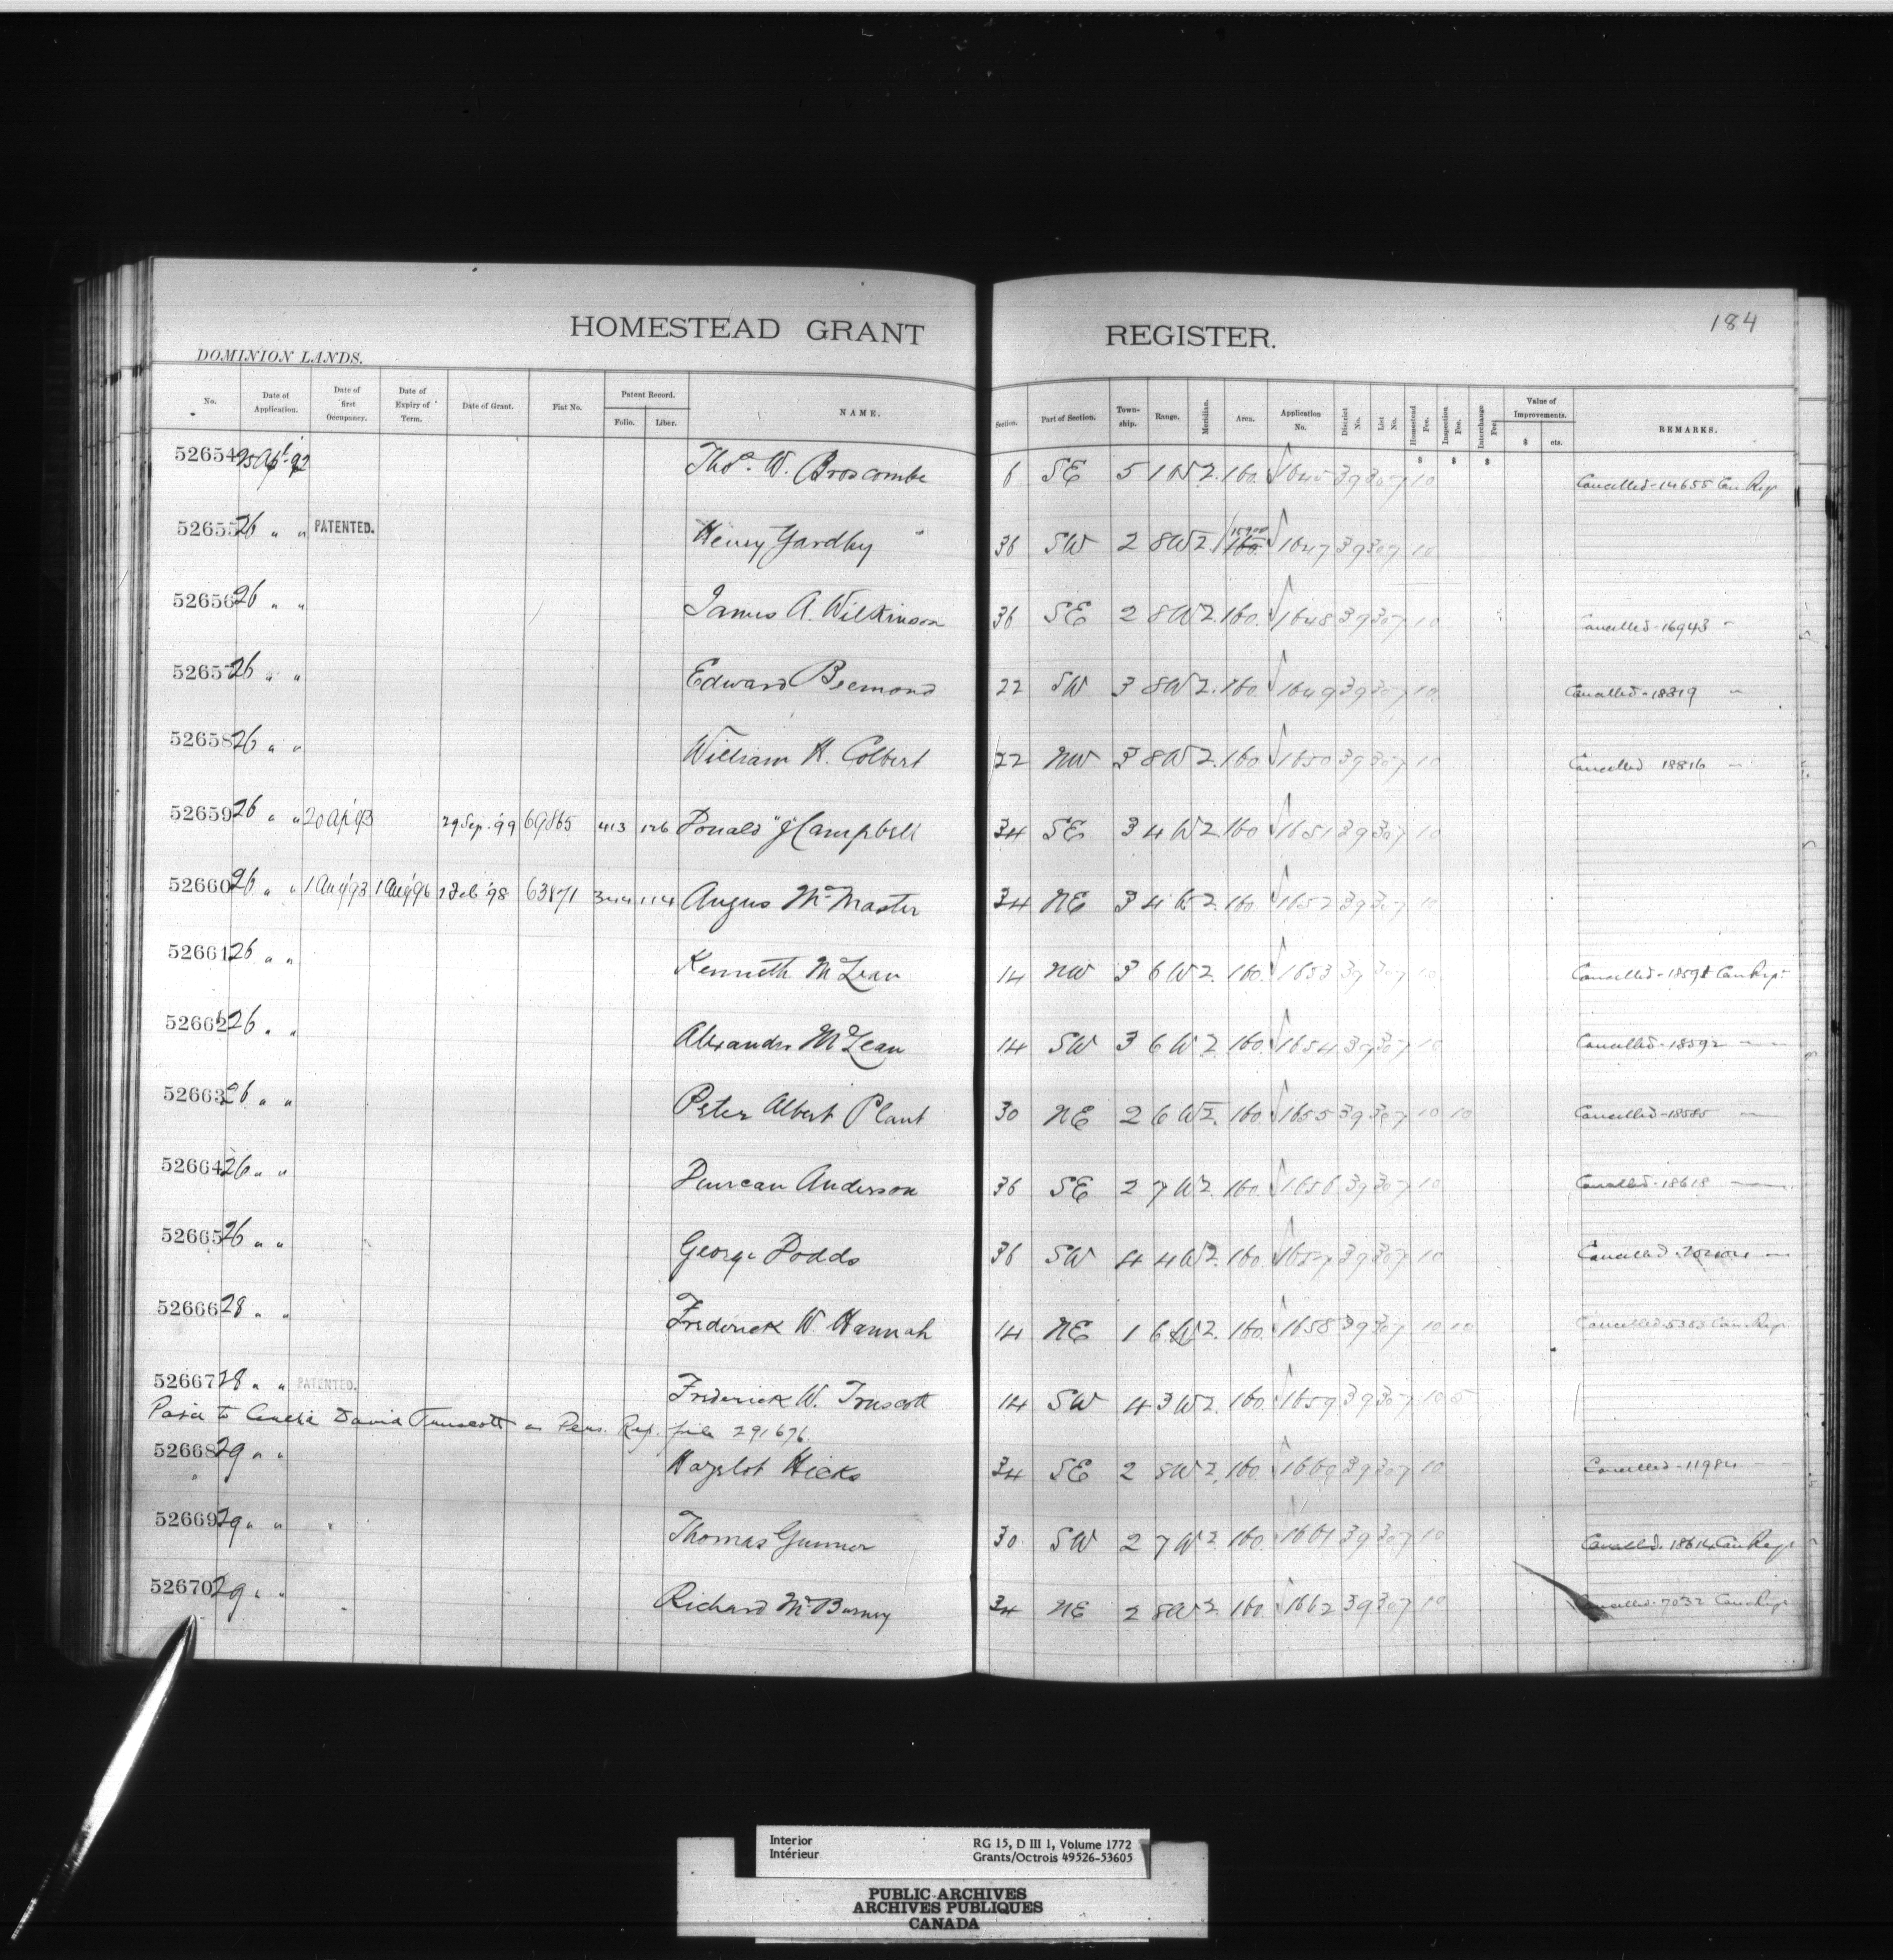 184
HOMESTEAD GRANT REGISTER.
DOMINION LANDS.
No. Date of Application. Date of first Occupancy. Date of Expiry of Term. Date of Grant. Fiat No. Patent Record. Folio. Liber. NAME. Section. Part of Section. Township. Range. Meridian. Area. Application No. District No. List No. Homestead Fee. Inspection Fee. Interchange Fee. Value of Improvements. $ cts. REMARKS.
$ $ $
52654 25 Apl 92 Thos. W. Broscombe 6 SE 5 1 W 2. 160. 1645 39 307 10 Cancelled-14655 Can Reg
52655 26 " " PATENTED. Henry Yardley 36 SW 2 8 W 2. 160. 1647 39 307 10
52656 26 " " James A. Wilkinson 36 SE 2 8 W 2. 160. 1648 39 307 10 Cancelled-16943 "
52657 26 " " Edward Beemond 22 SW 3 8 W 2. 160. 1649 39 307 10 Cancelled-18319 "
52658 26 " " William H. Colbert 22 NW 3 8 W 2. 160 1650 39 307 10 Cancelled 18816 "
52659 26 " " 20 Ap '93 29 Sep. '99 69865 413 126 Donald J Campbell 34 SE 3 4 W 2 160 1651 39 307 10
52660 26 " " 1 Aug '93 1 Aug '96 1 Feb '98 63871 344 114 Angus McMaster 34 NE 3 4 W 2. 160. 1652 39 307 10
52661 26 " " Kenneth McLean 14 NW 3 6 W 2. 160. 1653 39 307 10 Cancelled-18591 Can Reg.
52662 26 " " Alexander McLean 14 SW 3 6 W 2 160. 1654 39 307 10 Cancelled-18592 "
52663 26 " " Peter Albert Plant 30 NE 2 6 W 2. 160. 1655 39 307 10 10 Cancelled-18585 "
52664 26 " " Duncan Anderson 36 SE 2 7 W 2 160. 1656 39 307 10 Cancelled-18618 "
52665 26 " " George Dodds 36 SW 4 4 W 2. 160. 1657 39 307 10 Cancelled
52666 28 " " Frederick W. Hannah 14 NE 1 6 W 2. 160. 1658 39 307 10 10 Cancelled 5383 Can Reg.
52667 28 " " PATENTED. Frederick W. Truscott 14 SW 4 3 W 2 160. 1659 39 307 10 5
David Truscott Reg. file 291676.
52668 29 " " Hayelot Hicks 34 SE 2 8 W 2. 160. 1660 39 307 10 Cancelled-11984 "
52669 29 " " Thomas Gunner 30 SW 2 7 W 2. 160. 1661 39 307 10 Cancelled. 18614 Can Reg
52670 29 " " Richard McBurney 34 NE 2 8 W 2 160. 1662 39 307 10 Cancelled-7032 Can Reg
Interior
Intérieur
RG 15, D III 1, Volume 1772
Grants/Octrois 49526-53605
PUBLIC ARCHIVES
ARCHIVES PUBLIQUES
CANADA